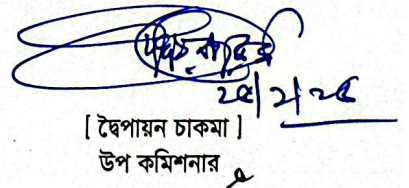 ২৫/২/২৫
[ দ্বৈপায়ন চাকমা ]
উপ কমিশনার